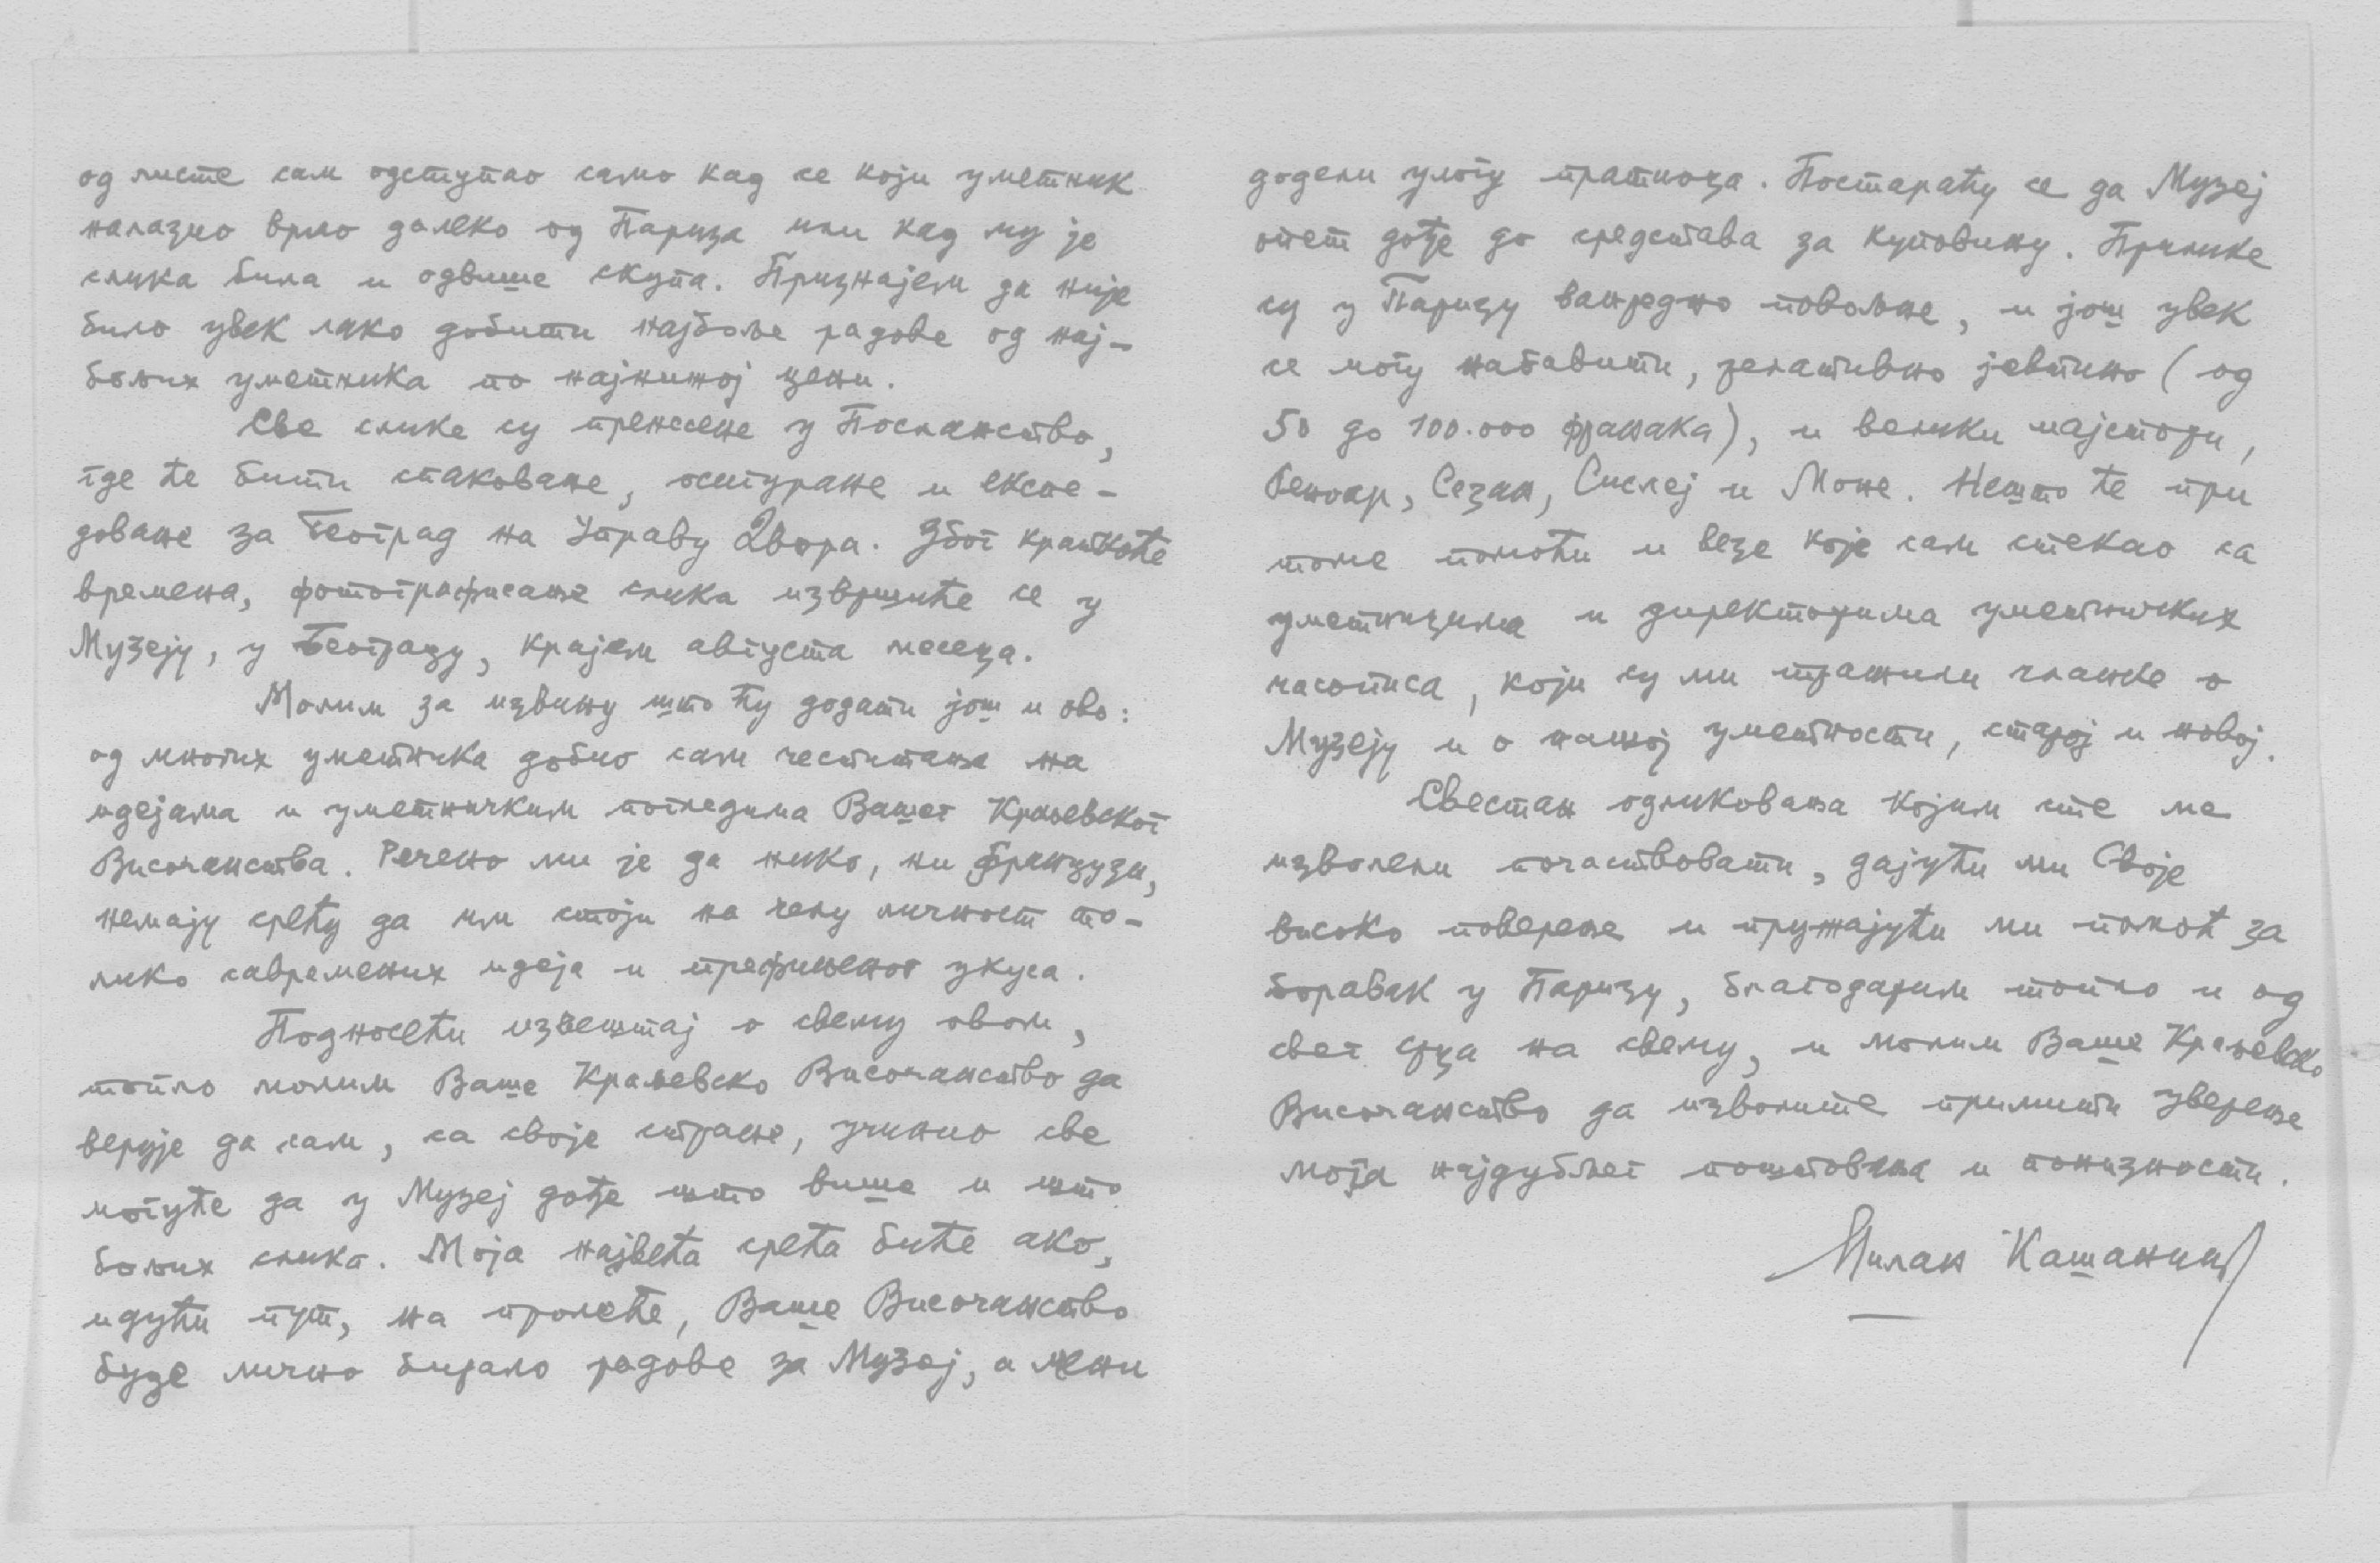 од листе сам одступао само кад се који уметник
налазио врло далеко од Париза или кад му је
слика била и одвише скупа. Признајем да није
било увек лако добити најбоље радове од нај-
бољих уметника по најнижој цени.
Све слике су пренесене у Посланство,
где ће бити спаковане, осигуране и експе-
доване за Београд на Управу Двора. Због краткоће
времена, фотографисање слика извршиће се у
Музеју, у Београду, крајем августа месеца.
Молим за извину што ћу додати још и ово:
од многих уметника добио сам честитања на
идејама и уметничким погледима Вашег Краљевског
Височанства. Речено ми је да нико, ни Французи,
немају срећу да им стоји на челу личност то-
лико савремених идеја и префињеног укуса.
Подносећи извештај о свему овом,
топло молим Ваше Краљевско Височанство да
верује да сам, са своје стране, учинио све
могуће да у Музеј дође што више и што
бољих слика. Моја највећа срећа биће ако,
идући пут, на пролеће, Ваше Височанство
буде лично бирало радове за Музеј, а мени
додели улогу пратиоца. Постараћу се да Музеј
опет дође до средстава за куповину. Прилике
су у Паризу ванредно повољне, и још увек
се могу набавити, релативно јевтино (од
50 до 100.000 франака), и велики мајстори,
Реноар, Сезан, Сислеј и Моне. Нешто ће при
томе помоћи и везе које сам стекао са
уметницима и директорима уметничких
часописа, који су ми тражили чланке о
Музеју и о нашој уметности, старој и новој.
Свестан одликовања којим сте ме
изволели почаствовати, дајући ми Своје
високо поверење и пружајући ми помоћ за
боравак у Паризу, благодарим топло и од
свег срца на свему, и молим Ваше Краљевско
Височанство да изволите примити уверење
мога најдубљег поштовања и понизности.
Милан Кашанин